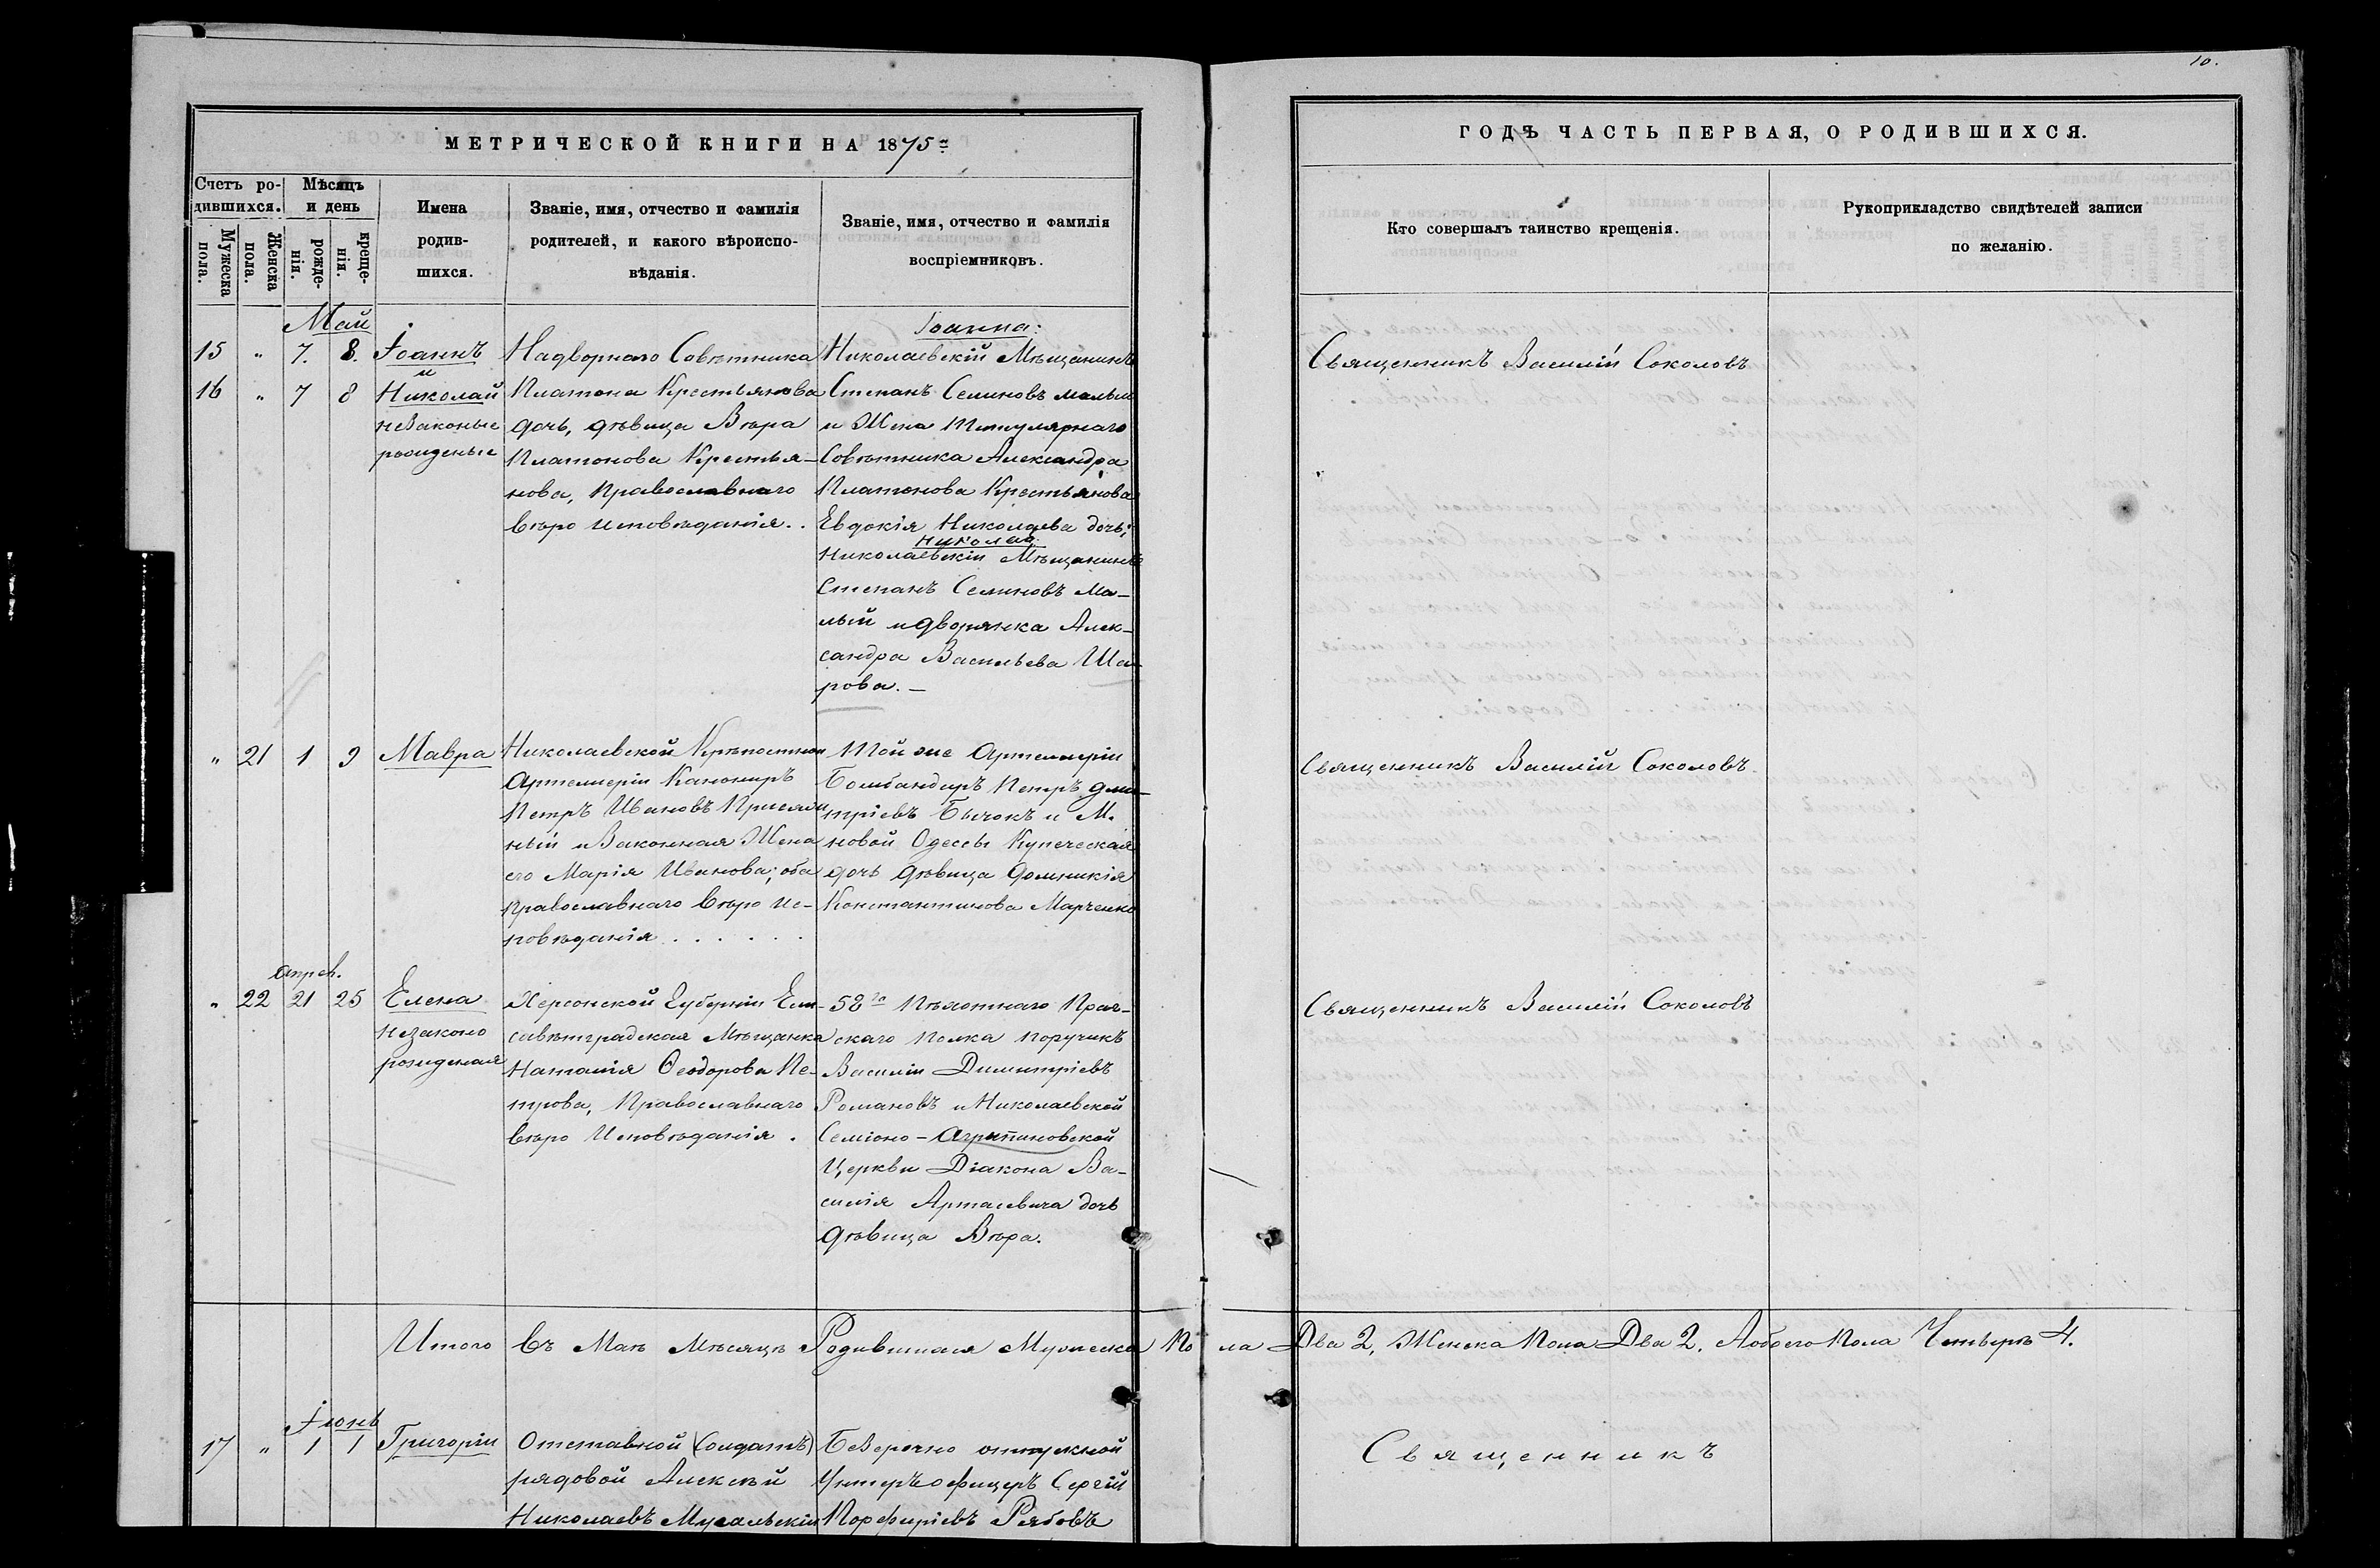 10.
МЕТРИЧЕСКОЙ КНИГИ НА 1875 г.
ГОДЪ ЧАСТЬ ПЕРВАЯ, О РОДИВШИХСЯ.
Счетъ ро-
дившихся.
Мужеска
пола.
Женска
пола.
Мѣсяцъ
и день
рожде-
нія.
креще-
нія.
Имена
родив-
шихся.
Званіе, имя, отчество и фамилія
родителей, и какого вѣроиспо-
вѣданія.
Званіе, имя, отчество и фамилія
воспріемниковъ.
Кто совершалъ таинство крещенія.
Рукоприкладство свидѣтелей записи
по желанію.
Май
15 " 7. 8.
16 " 7 8
Іоаннъ
и
Николай
незаконые
рожденые
Надворнаго Совѣтника
Платона Крестьянова
дочь, дѣвица Вѣра
Платонова Крестья-
нова, Православнаго
вѣро исповѣданія..
Іоанна:
Николаевскій Мѣщанинъ
Степанъ Семиновъ малый
и Жена Титулярнаго
Совѣтника Александра
Платонова Крестьянова
Евдокія Николаева дочь;
Николая
Николаевскій Мѣщанинъ
Степанъ Семиновъ Ма-
лый и дворянка Алек-
сандра Васильева Ша-
рова. —
Священникъ Василій Соколовъ
" 21 1 9
Мавра
Николаевской Крѣпостной
Артиллеріи Канониръ
Петръ Ивановъ
ный и Законная Жена
его Марія Иванова; оба
Православнаго вѣро ис-
повѣданія . . . . . .
Той же Артиллеріи
Бомбандиръ Петръ Дми-
тріевъ Бычокъ и М.
новой Одессы Купеческая
дочь дѣвица Домникія
Константинова Марченко
Священникъ Василій Соколовъ.
апрел.
" 22 21 25
Елена
незаконо
рожденая
Херсонской Губерніи Ели-
саветградская Мѣщанка
Наталія Ѳеодорова Пе-
трова, Православнаго
вѣро Исповѣданія .
58го Пѣхотнаго Праг-
скаго полка поручикъ
Василій Димитріевъ
Романовъ и Николаевской
Семіоно-Агрипиновской
Церкви Діакона Ва-
силія Артасевича дочь
дѣвица Вѣра.
Священникъ Василій Соколовъ
Итого въ Маѣ Мѣсяцѣ Родившихся Мужеска Пола Два 2, Женска Пола Два 2. А обоего Пола Четверо 4.
Іюнь
17 " 1 1
Григорій
Отставной (солдатъ)
рядовой Алексѣй
Николаевъ Мусальскій
Безсрочно отпускной
Унтеръ офицеръ Сергій
Порфиріевъ Рябовъ
Священникъ